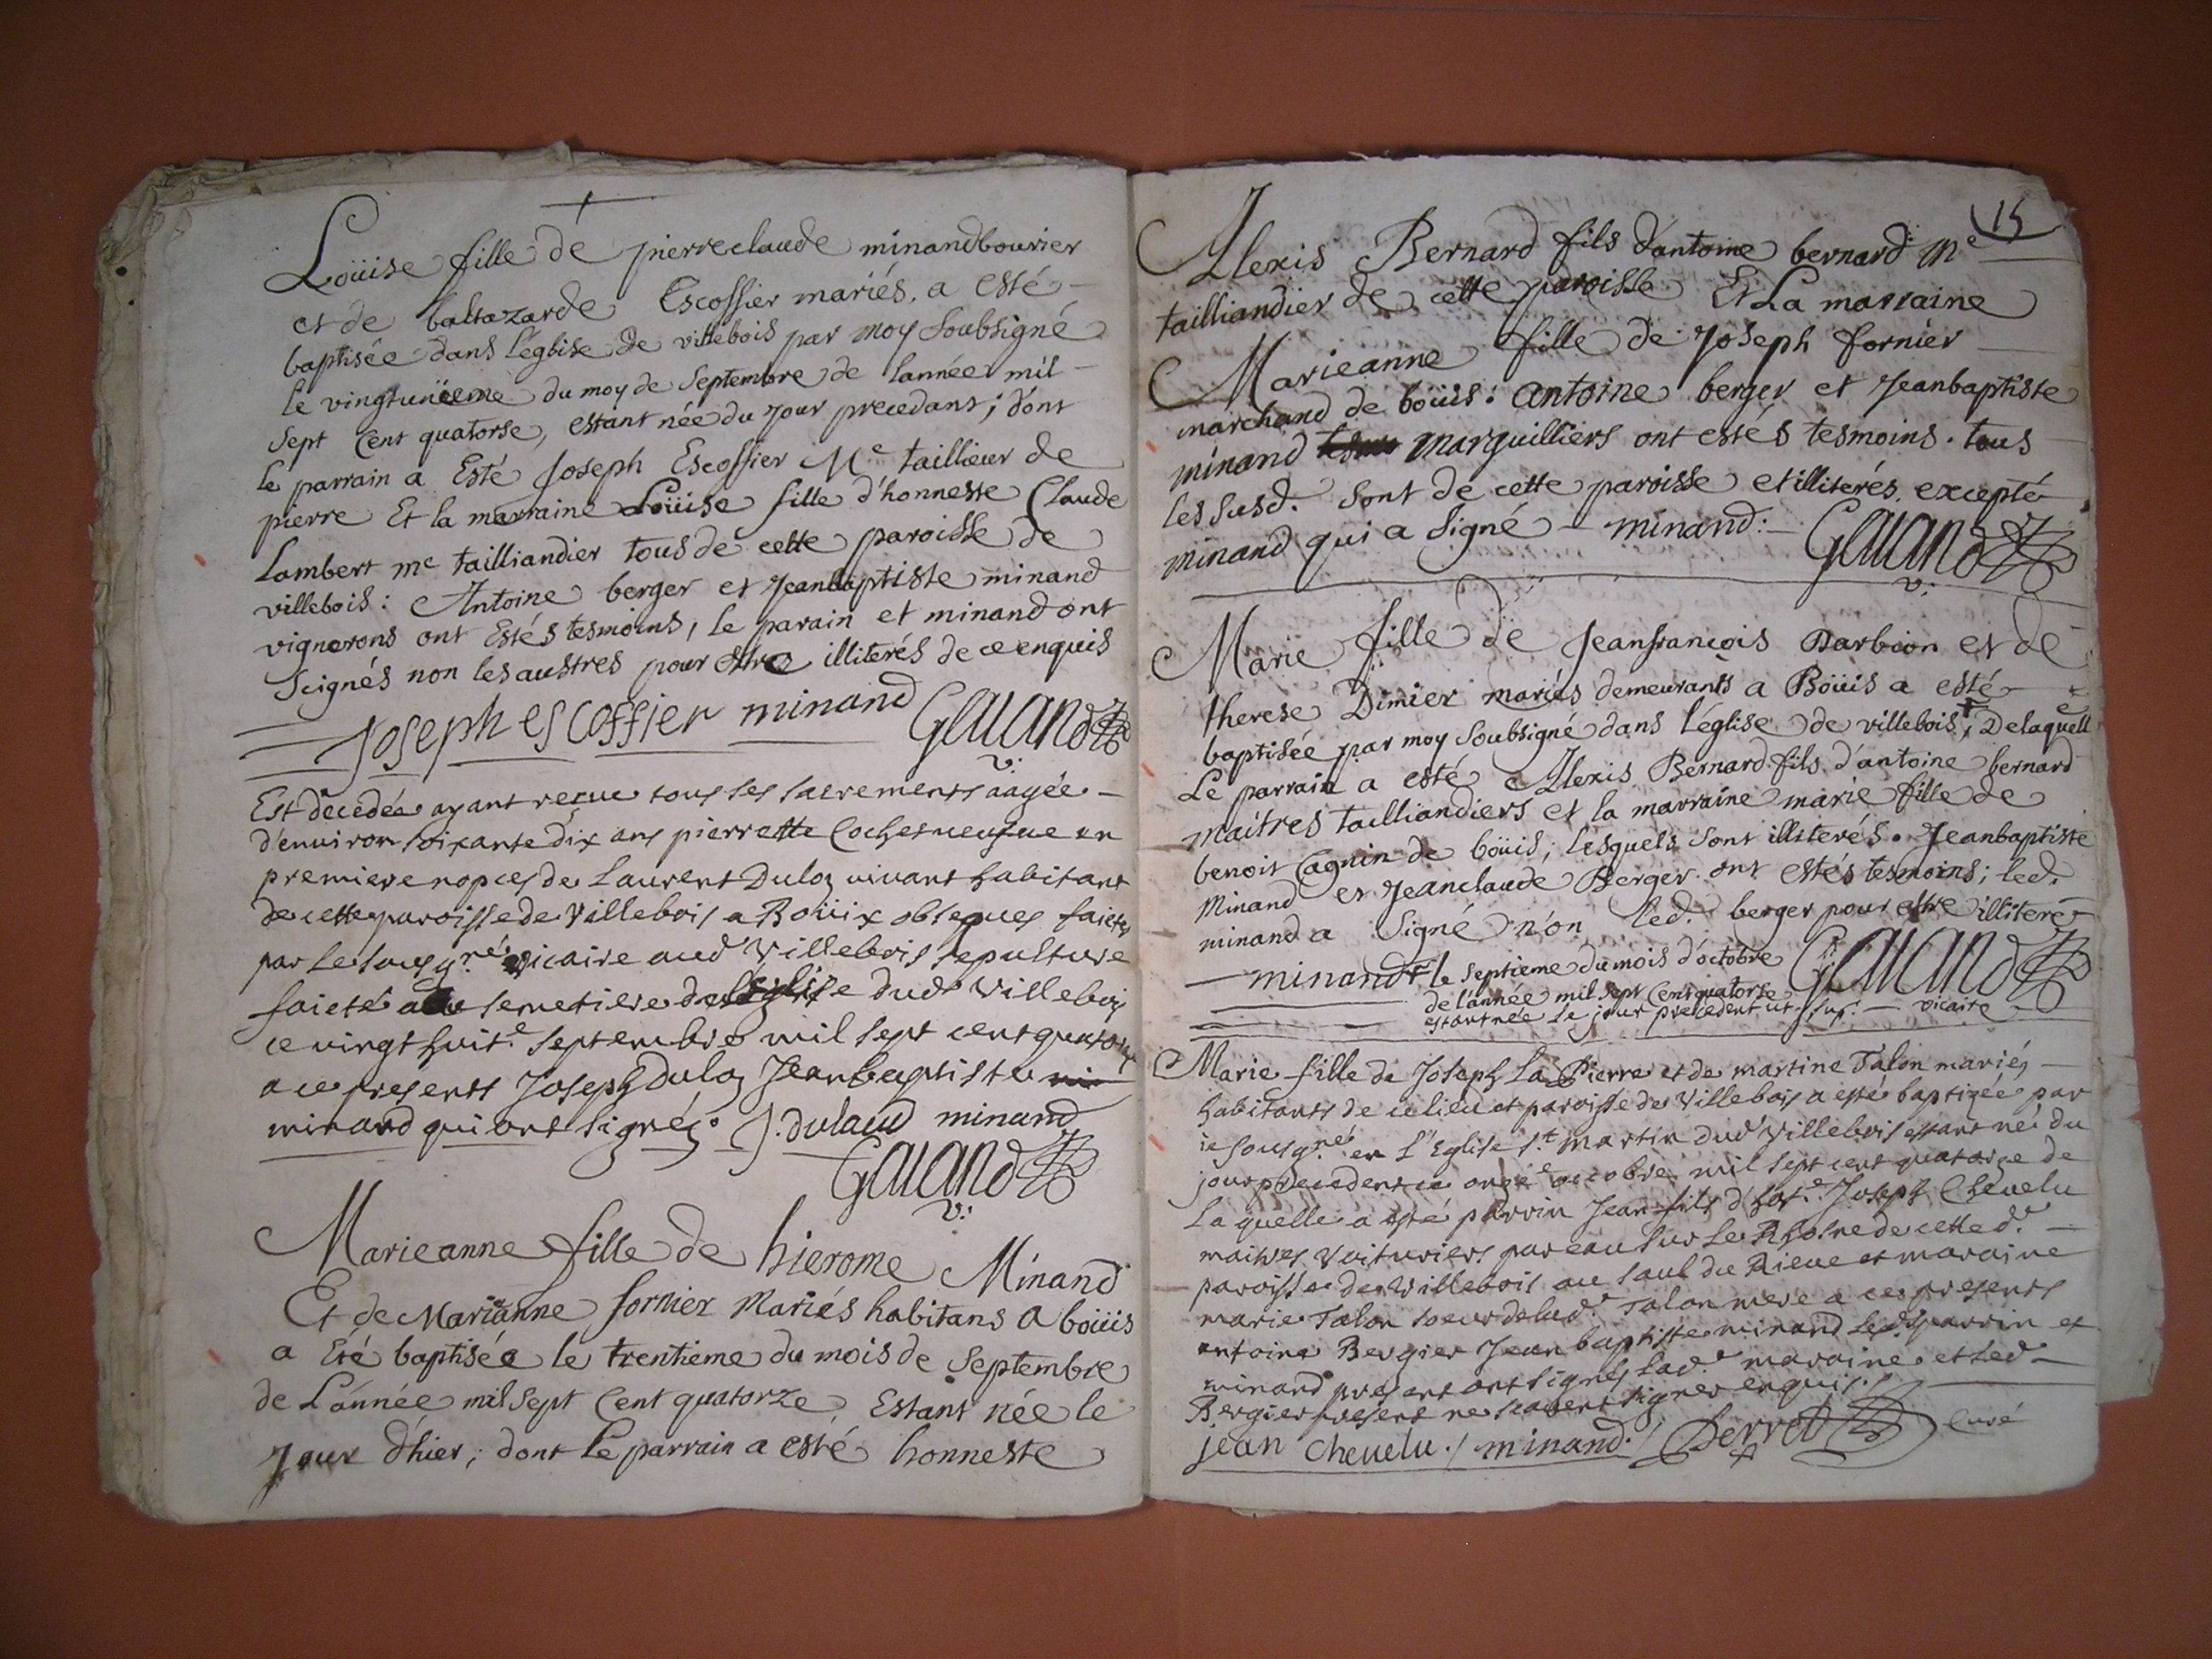 Loüise fille de pierreclaude minandbourier
et de baltazarde Escoffier mariés, a esté
baptisée dans l'église de villebois par moy Soubsigné
le vingtunieme du moy de Septembre de lannée mil
Sept Cent quatorse, estant née du jour precedant; dont
le parrain a Esté Joseph Escoffier Me taillieur de
pierre Et la marraine Loüise fille d'honneste Claude
Lambert me tailliandier tous de cette paroisse de
villebois: Antoine berger et Jeanbaptiste minand
vignerons ont Estés tesmoins, le parain et minand ont
Seignés non les austres pour estre illiterés de ce enquis
Joseph escoffier minand Galand
v:
Est decedée ayant reçue tous ses sacrements aagée
d'environ soixante dix ans pierrette Coches
premiere nopces de Laurent Duloz vivant habitant
de cette paroisse de Villebois a Boüix obseques faictes
par le sousgné vicaire aud Villebois sepulture
faicte au semetiere de l'Eglise dud Villebois
ce vingt huit.e septembre mil sept cent quatorze
a ce presents Joseph duloz Jeanbaptiste
minand qui ont signéz. J. dulaud minand
Galand
v:
Marieanne fille de hierome Minand
Et de Marianne fornier Mariés habitans a boüis
a Eté baptisée le trentieme du mois de Septembre
de L'année mil Sept Cent quatorze, Estant née le
Jour d'hier; dont le parrain a esté honneste
15
Alexis Bernard fils d'antoine bernard Me
tailliandier de cette paroisse Et La marraine
Marieanne fille de Joseph fornier
marchand de boüis: antoine berger et Jeanbaptiste
minand marguilliers ont estés tesmoins. tous
les susd. sont de cette paroisse et illiterés. excepté
minand qui a Signé minand: Galand
v:
Marie fille de Jeanfrancois Darbion et de
therese Dimier mariés demeurants a Boüis a esté
baptisée par moy Soubsigné dans l'église de villebois; Delaquelle
Le parrain a esté Alexis Bernard fils d'antoine bernard
maitres tailliandiers et la marraine marie fille de
benoit Cagnin de boüis; lesquels sont illiterés. Jeanbaptiste
Minand et Jeanclaude Berger ont estés tesmoins; led.
minand a Signé n'on led. berger pour estre illiteré
minand le septieme du mois d'octobre Galand
de l'année mil Sept Cent quatorse
estant née le jour precedent ut sup. vicaire
Marie fille de Joseph La Pierre et de martine Talon mariéz
habitants de ce lieu et paroisse de Villebois a esté baptizée par
ie sousgné en L'Eglise St. Martin dud Villebois estant né du
jour precedent ce onzie octobre mil sept cent quatorze de
Laquelle a esté parrin Jean fils d'hote. Joseph Chevelu
maitres voituriers par eau sur le Rhosne de cetted.
paroisse de Villebois au saul du Rieve et maraine
marie Talon soeur de lad. Talon mere a ce presents
antoine Bergier Jean baptiste minand led. parrin et
minand present ont signéz lad. maraine et led
Bergier present ne scavent signer enquis.
jean chevelu. / minand. / Perret Curé